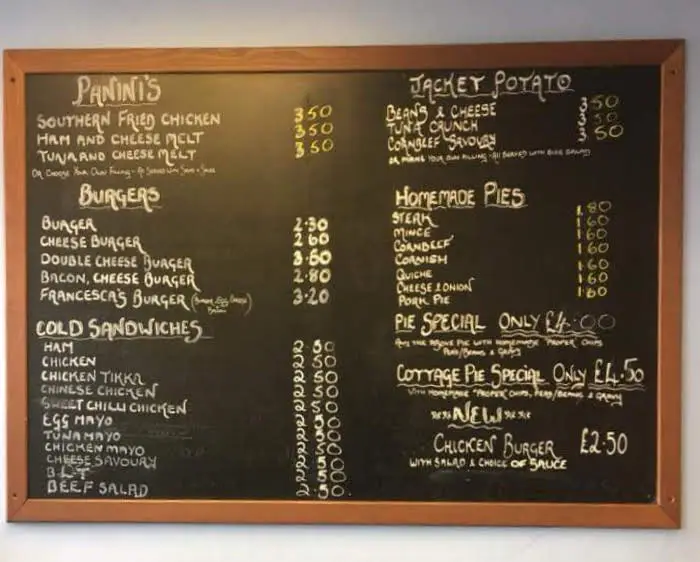 PANINI'S
SOUTHERN FRIED CHICKEN 3.50
HAM AND CHEESE MELT 3.50
TUNA AND CHEESE MELT 3.50
OR CHOOSE YOUR OWN FILLING - ALL SERVED WITH SALAD & SAUCE
BURGERS
BURGER 2.30
CHEESE BURGER 2.60
DOUBLE CHEESE BURGER 3.60
BACON, CHEESE BURGER 2.80
FRANCESCA'S BURGER (BURGER, EGG, CHEESE, BACON) 3.20
COLD SANDWICHES
HAM 2.50
CHICKEN 2.50
CHICKEN TIKKA 2.50
CHINESE CHICKEN 2.50
SWEET CHILLI CHICKEN 2.50
EGG MAYO 2.50
TUNA MAYO 2.50
CHICKEN MAYO 2.50
CHEESE SAVOURY 2.50
B.L.T 2.50
BEEF SALAD 2.50
JACKET POTATO
BEANS & CHEESE 3.50
TUNA CRUNCH 3.50
CORNBEEF SAVOURY 3.50
YOUR OWN FILLING - ALL SERVED WITH SIDE SALAD
HOMEMADE PIES
STEAK 1.80
MINCE 1.60
CORNBEEF 1.60
CORNISH 1.60
QUICHE 1.60
CHEESE & ONION 1.60
PORK PIE
PIE SPECIAL ONLY £4.00
ANY THE ABOVE PIE WITH HOMEMADE "PROPER" CHIPS
PEAS/BEANS & GRAVY
COTTAGE PIE SPECIAL ONLY £4.50
WITH HOMEMADE "PROPER" CHIPS, PEAS/BEANS & GRAVY
NEW
CHICKEN BURGER £2.50
WITH SALAD & CHOICE OF SAUCE